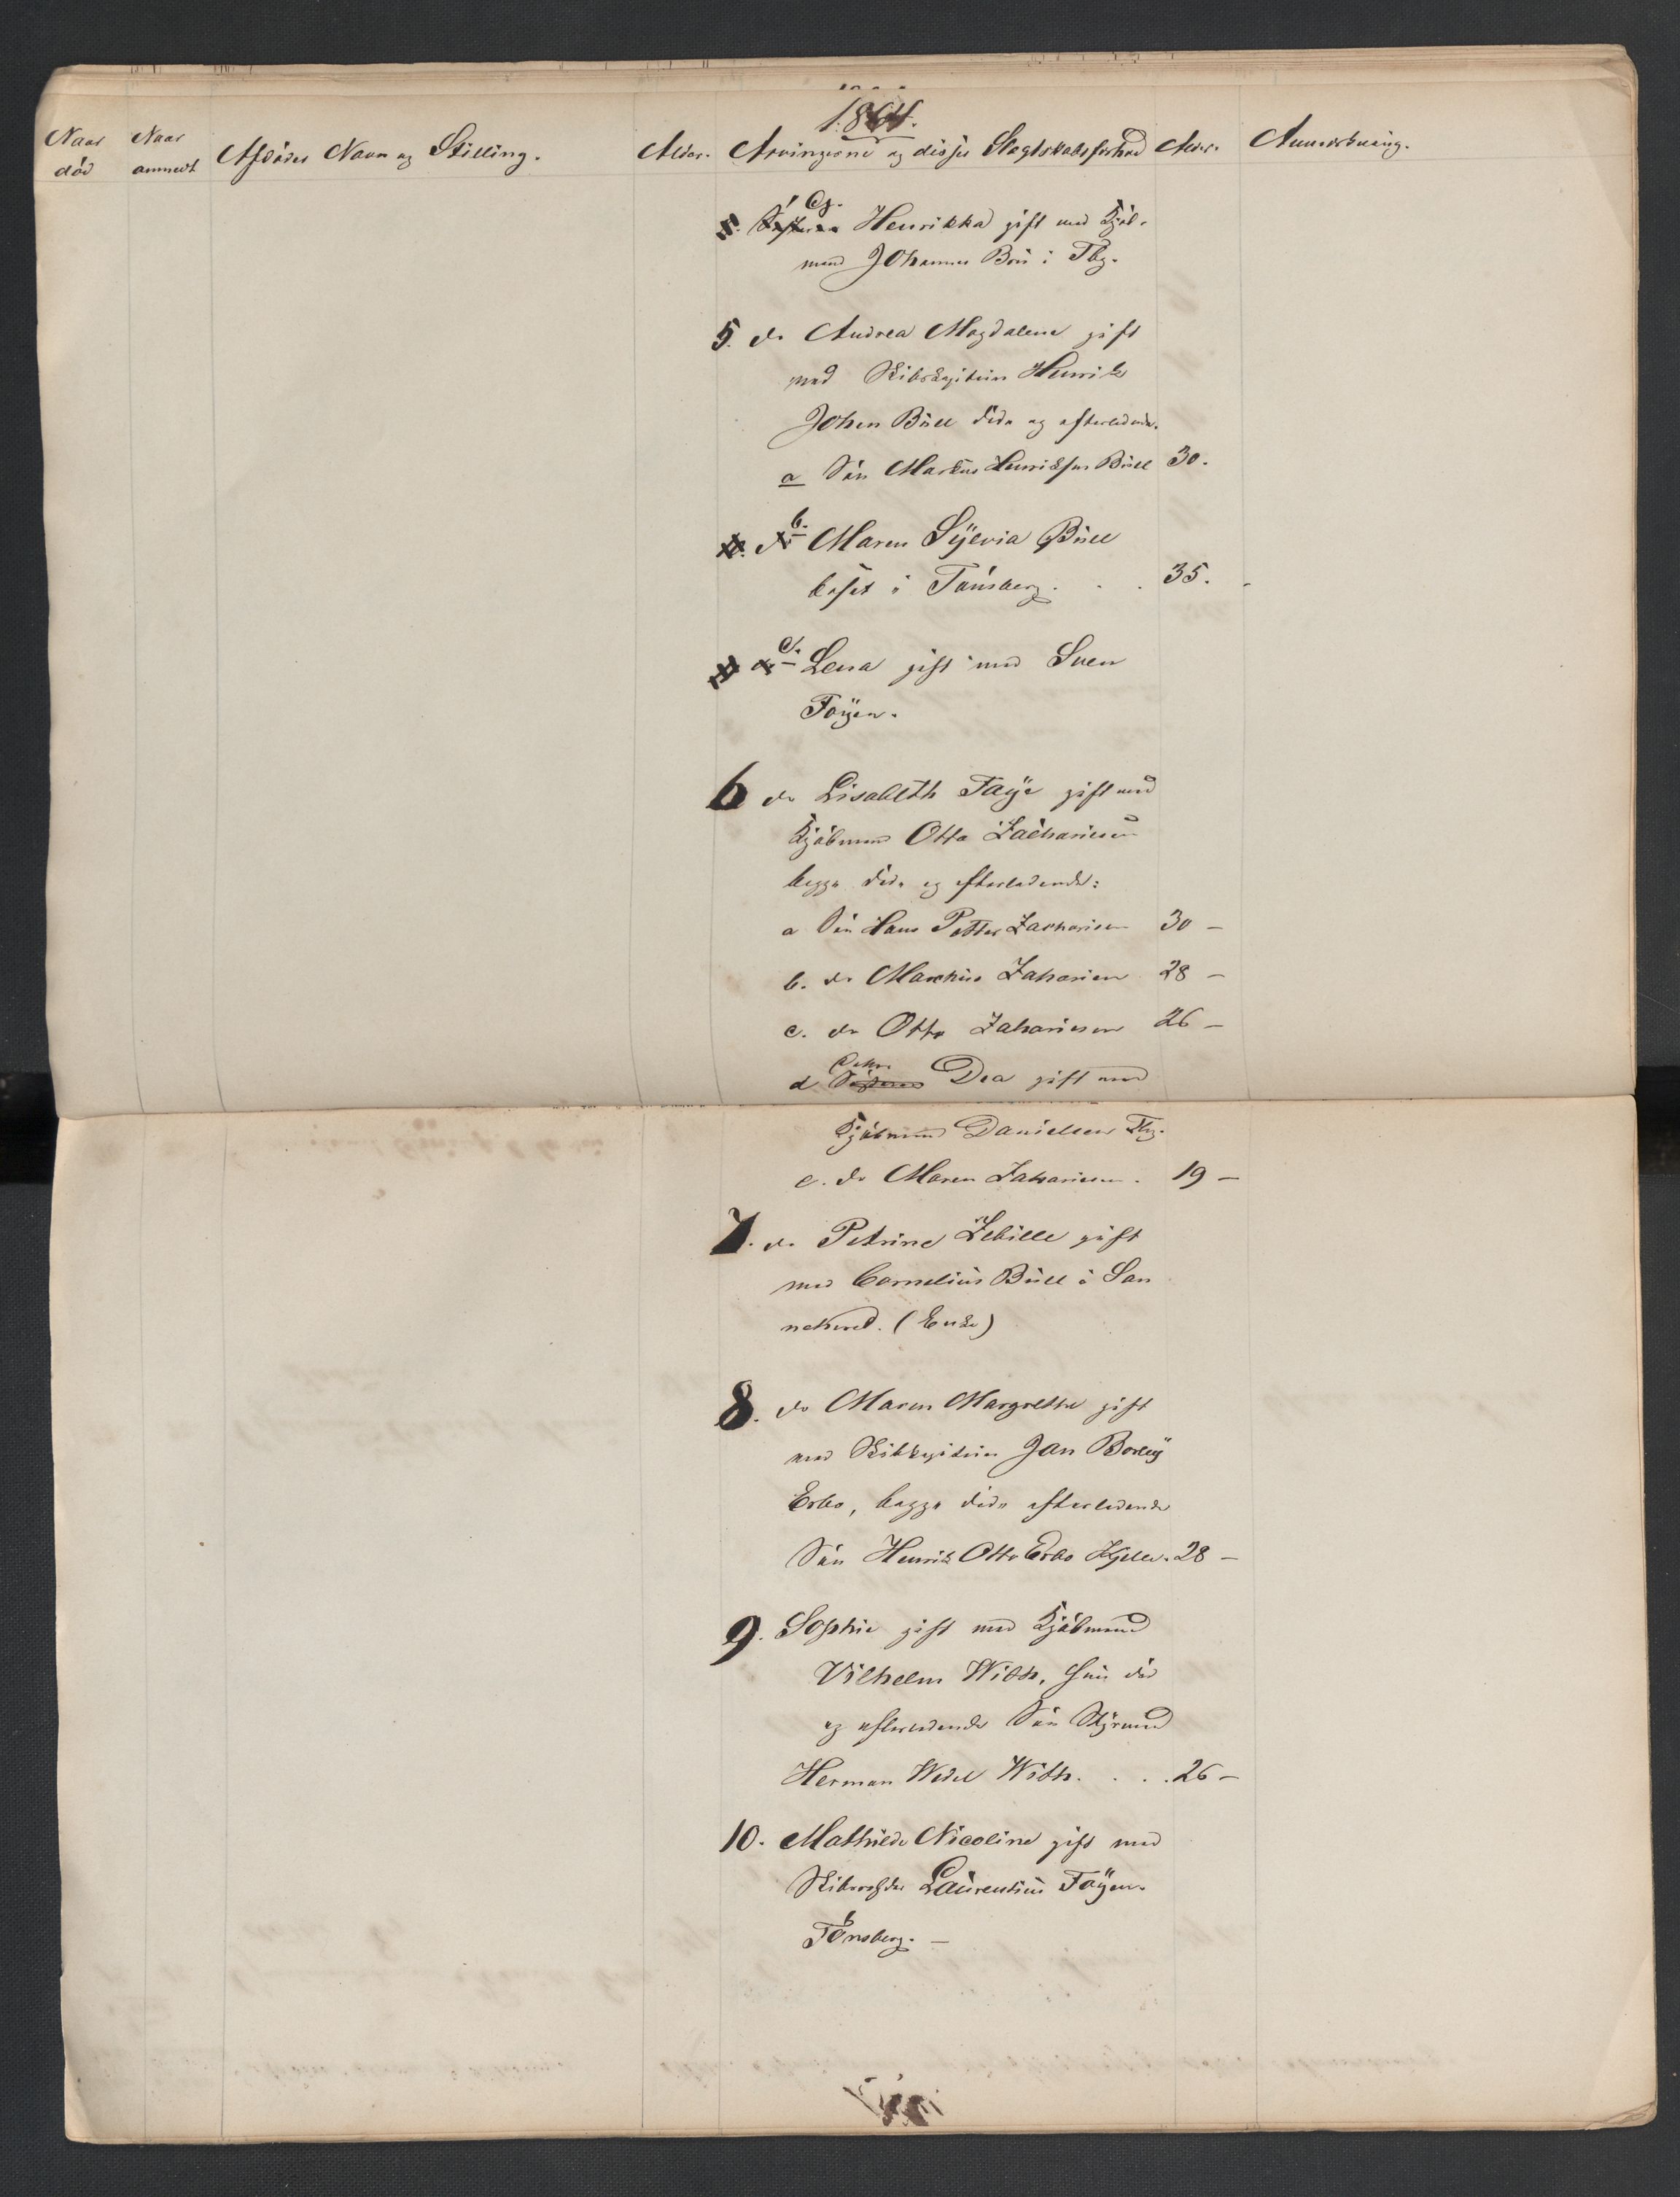 1864.
Naar død
Naar anmeldt
Afdødes Navn og Stilling.
Alder.
Arvingerne og disses Slægtskabsforhold
Alder.
Anmærkning.
Henrikka gift med Kjøb-
mand Johannes Bøe i Tbg.
5. do Andrea Magdalene gift
med Skibskaptein Henrik
Johan Büll døde og efterladende.
a Søn Markus Henriksen Büll 30.
b. Maren Sylvia Büll
bosat i Tønsberg. . . 35.
c. Lena gift med Sven
Føyen.
6 do Lisabeth Faÿe gift med
Kjøbmand Otto Zachariesen
begge døde og efterladende:
a Søn Hans Petter Zachariesen 30 -
b. do Markus Zahariesen 28 -
c. do Otto Zahariesen 26 -
d Datter Dea gift med
Kjøbmand Danielsen Tbg.
e. do Maren Zahariesen. 19 -
7. do Petrine Zebille gift
med Cornelius Büll i San
nekered. (Enke)
8. do Maren Margrethe gift
med Skibskaptein Jan Borleÿ
Erbo, begge døde efterladende
Søn Henrik Otto Erbo 28 -
9. Sophie gift med Kjøbmand
Vilhelm With, hun død
og efterladende Søn Styrmand
Herman Wedel With. . . . 26 -
10. Mathilde Nicoline gift med
Skibsreder Laurentius Føÿen.
Tønsberg. -